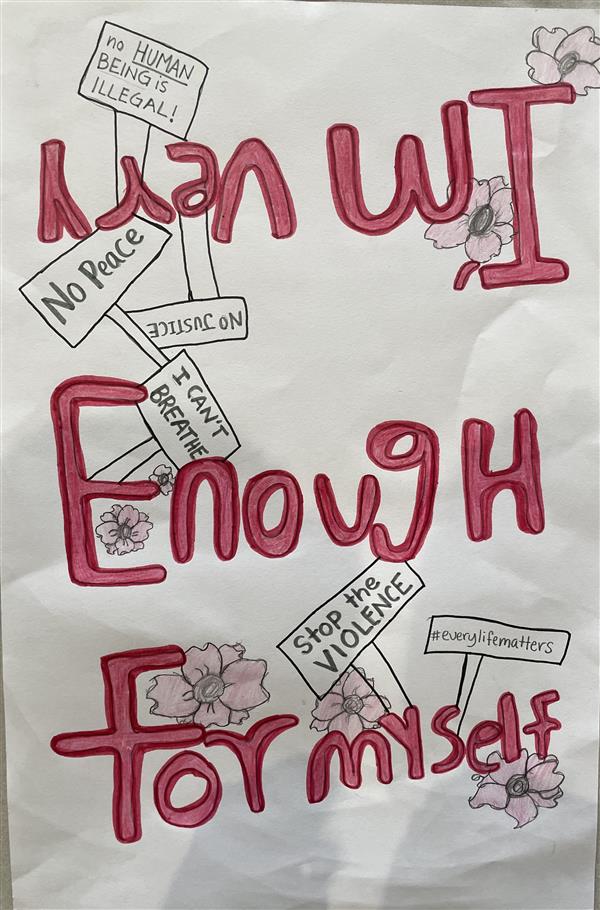 no HUMAN
BEING is
ILLEGAL!
I'm very
No Peace
NO JUSTICE
I CAN'T
BREATHE
Enough
Stop the
VIOLENCE
#everylifematters
For myself